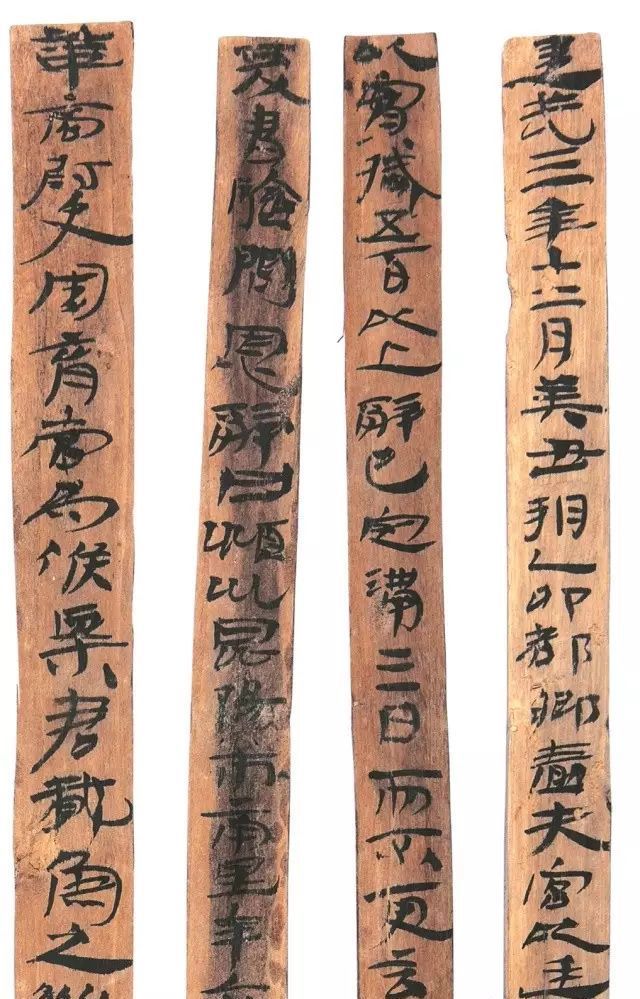 建武三年十二月癸丑朔乙卯都鄉嗇夫宮以廷
以實臧五百以上辭已定滿三日而不更言
爰書驗問恩辭曰潁川昆陽市南里年六
華商尉史周育當為候粟君載魚之